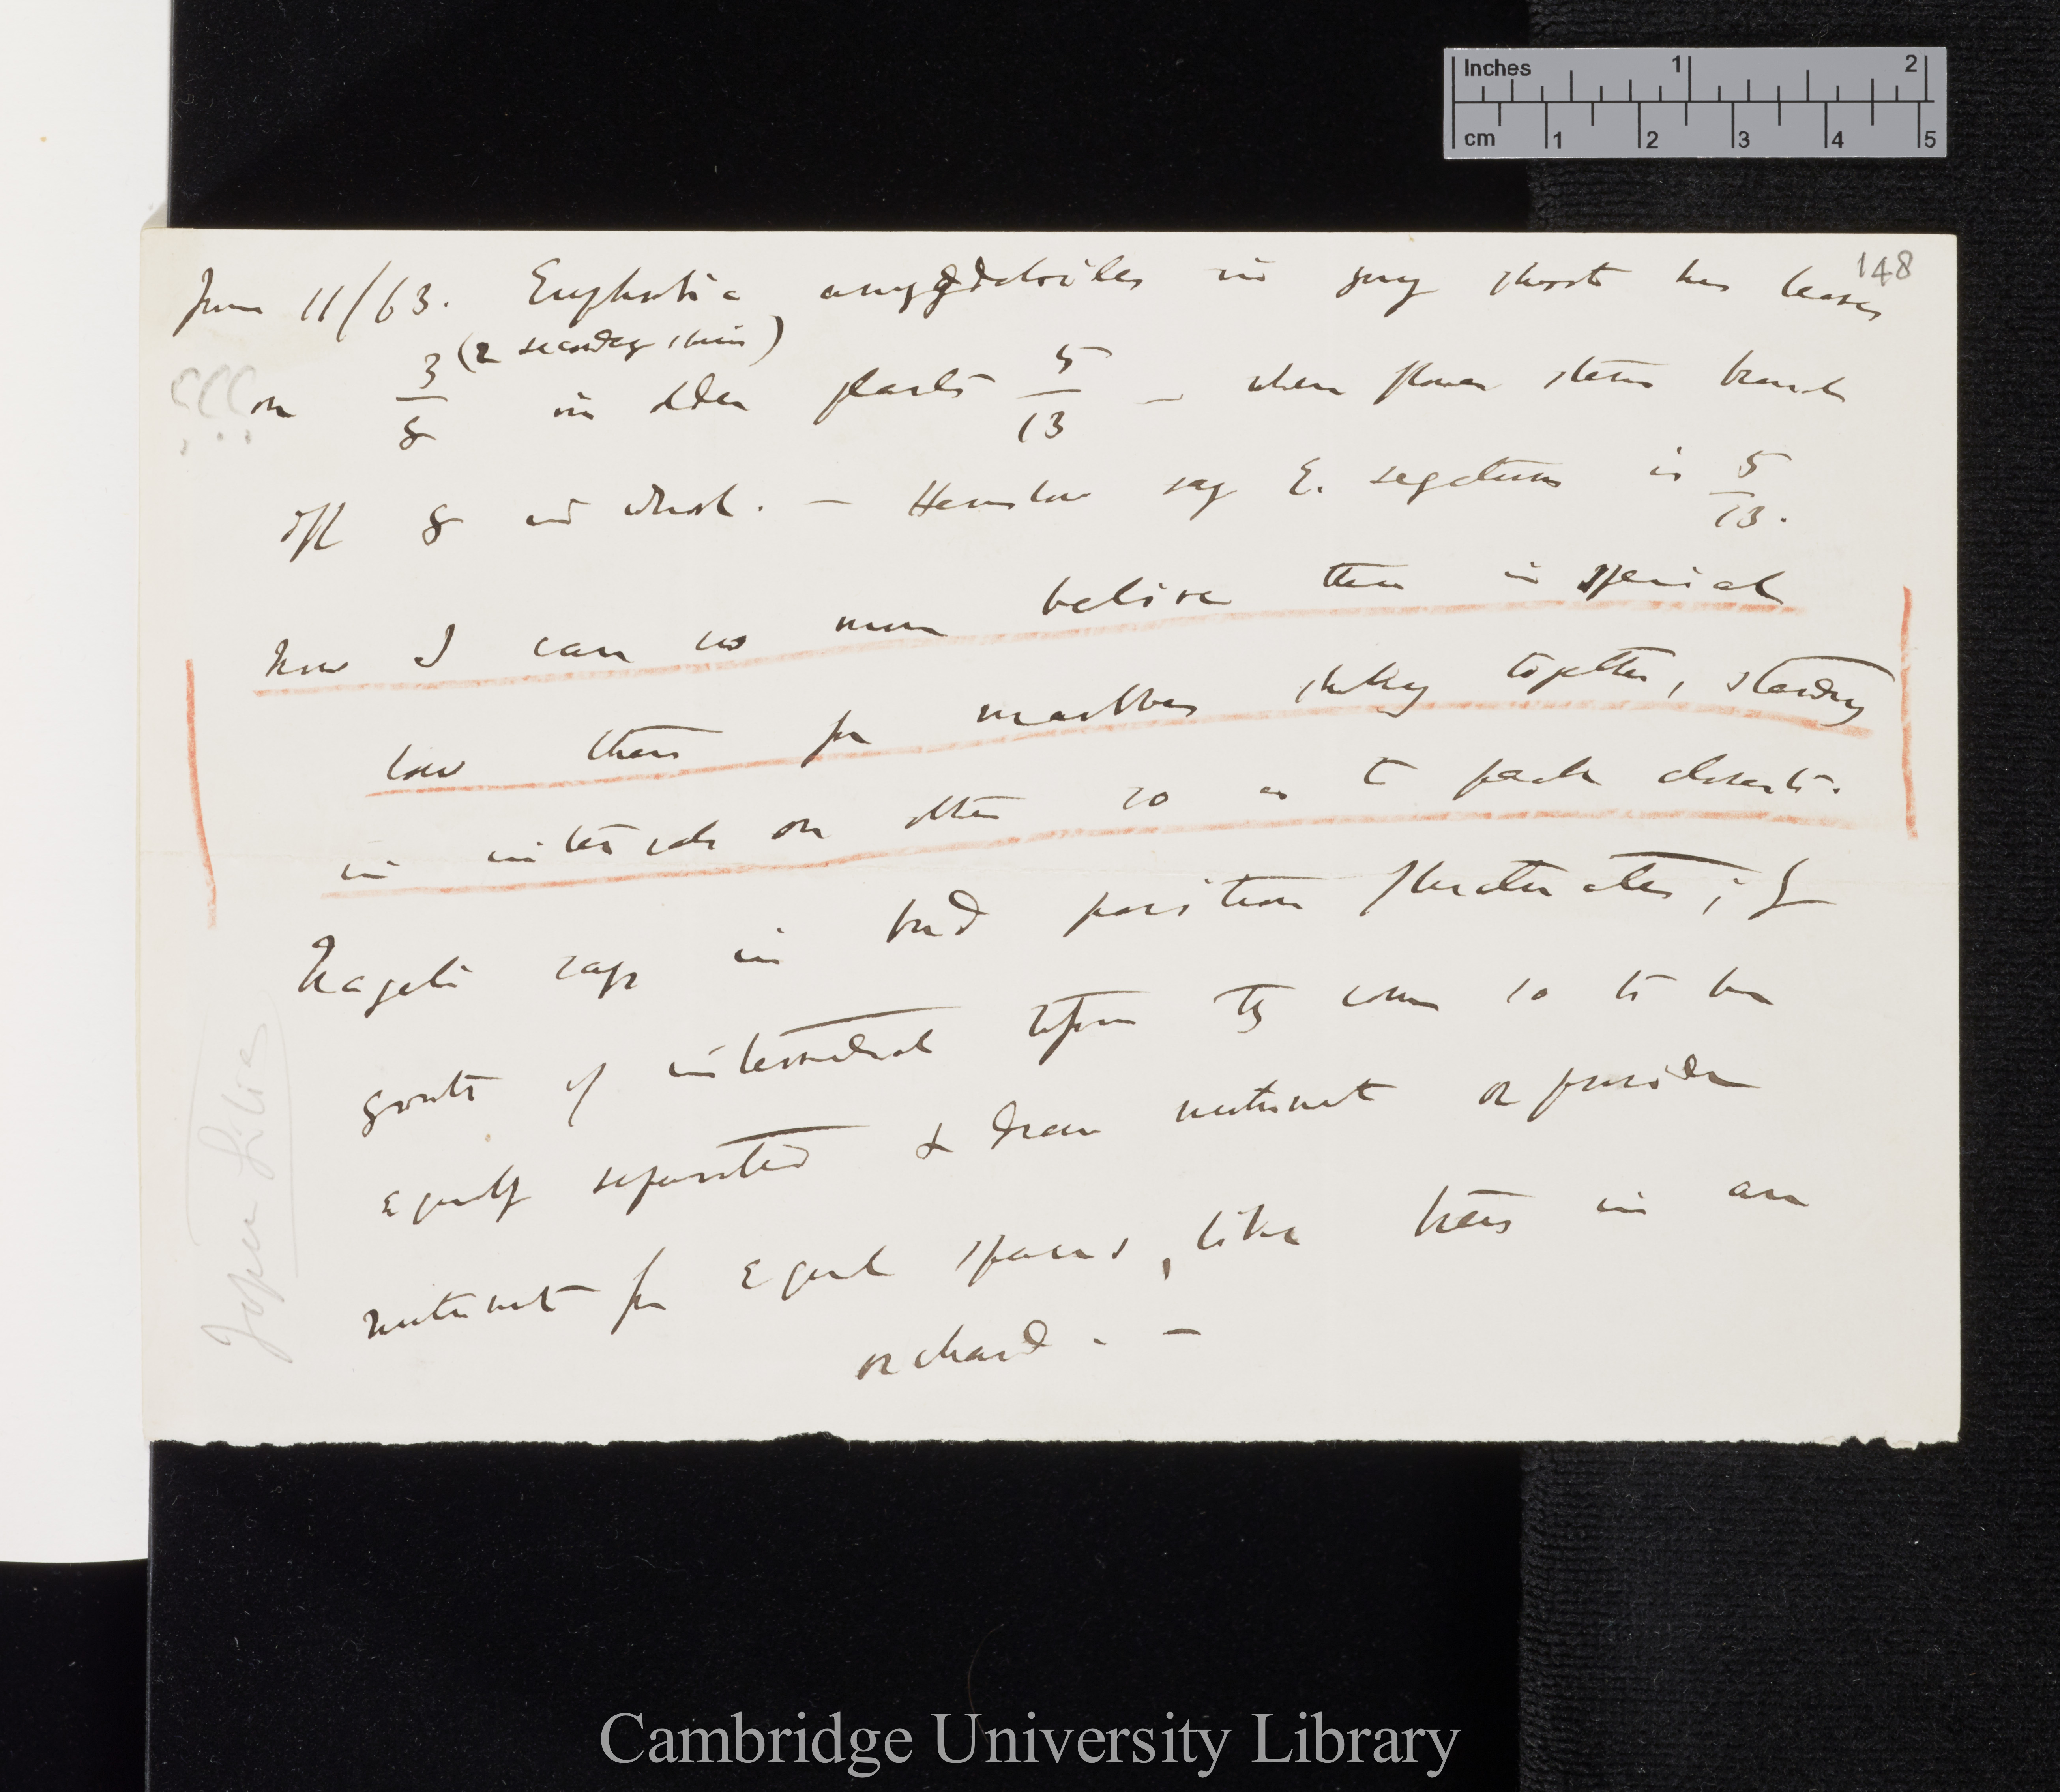 Inches 1 2
cm 1 2 3 4 5
148
June 11/63. Euphorbia amygdaloides in young shoots has leaves
(2 secondary spires)
??? on 3/8 in older plants 5/13 — when flower stems branch
off 8 in whorl. — Henslow says E. segetum is 5/13.
Now I can no more believe there is special
law than for marbles sticking together, standing
in intervals on other so as to pack closest.
Nageli says in bud position fluctuates; if
growth of internodal spaces they come so to be
equally separated & draw nutriment or provide
nutriment for equal spaces, like trees in an
orchard. —
Japan Lilies
Cambridge University Library